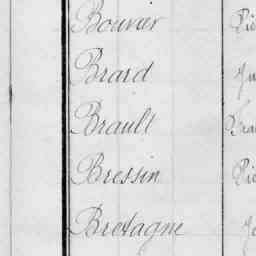 Bouvier Pie
Brard Ju
Brault Fra
Bressin Pie
Bretagne Je